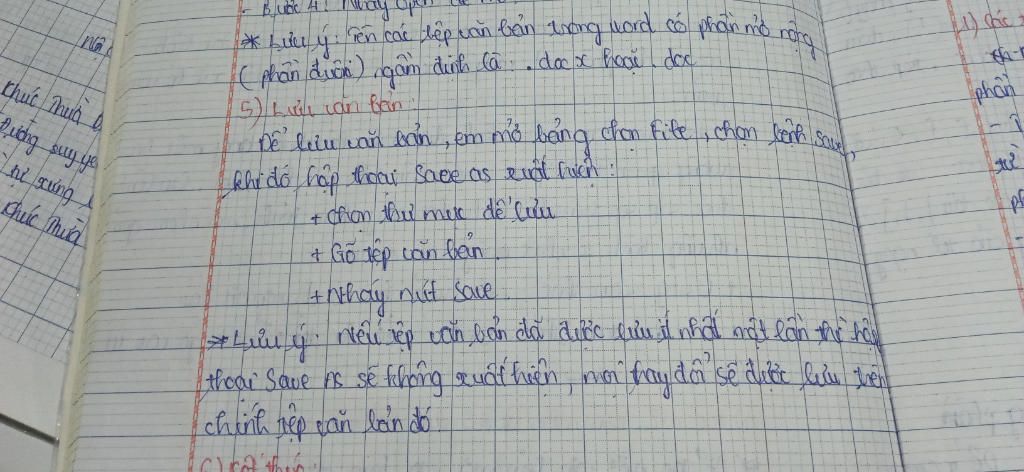 - Bước 4: Nháy open
* Lưu ý: Tên các tệp văn bản trong word có phần mở rộng
(phần đuôi) ngầm định là .docx hoặc .doc
5) Lưu văn bản
Để lưu văn bản, em mở bảng chọn File, chọn lệnh save,
khi đó hộp thoại Save as xuất hiện:
+ chọn thư mục để lưu
+ Gõ tệp văn bản
+ Nháy nút save
* Lưu ý: Nếu tệp văn bản đã được lưu ít nhất một lần thì hộp
thoại Save As sẽ không xuất hiện, mọi thay đổi sẽ được lưu trên
chính tệp văn bản đó
chức Thuà
chức Thuà
1) các
phần